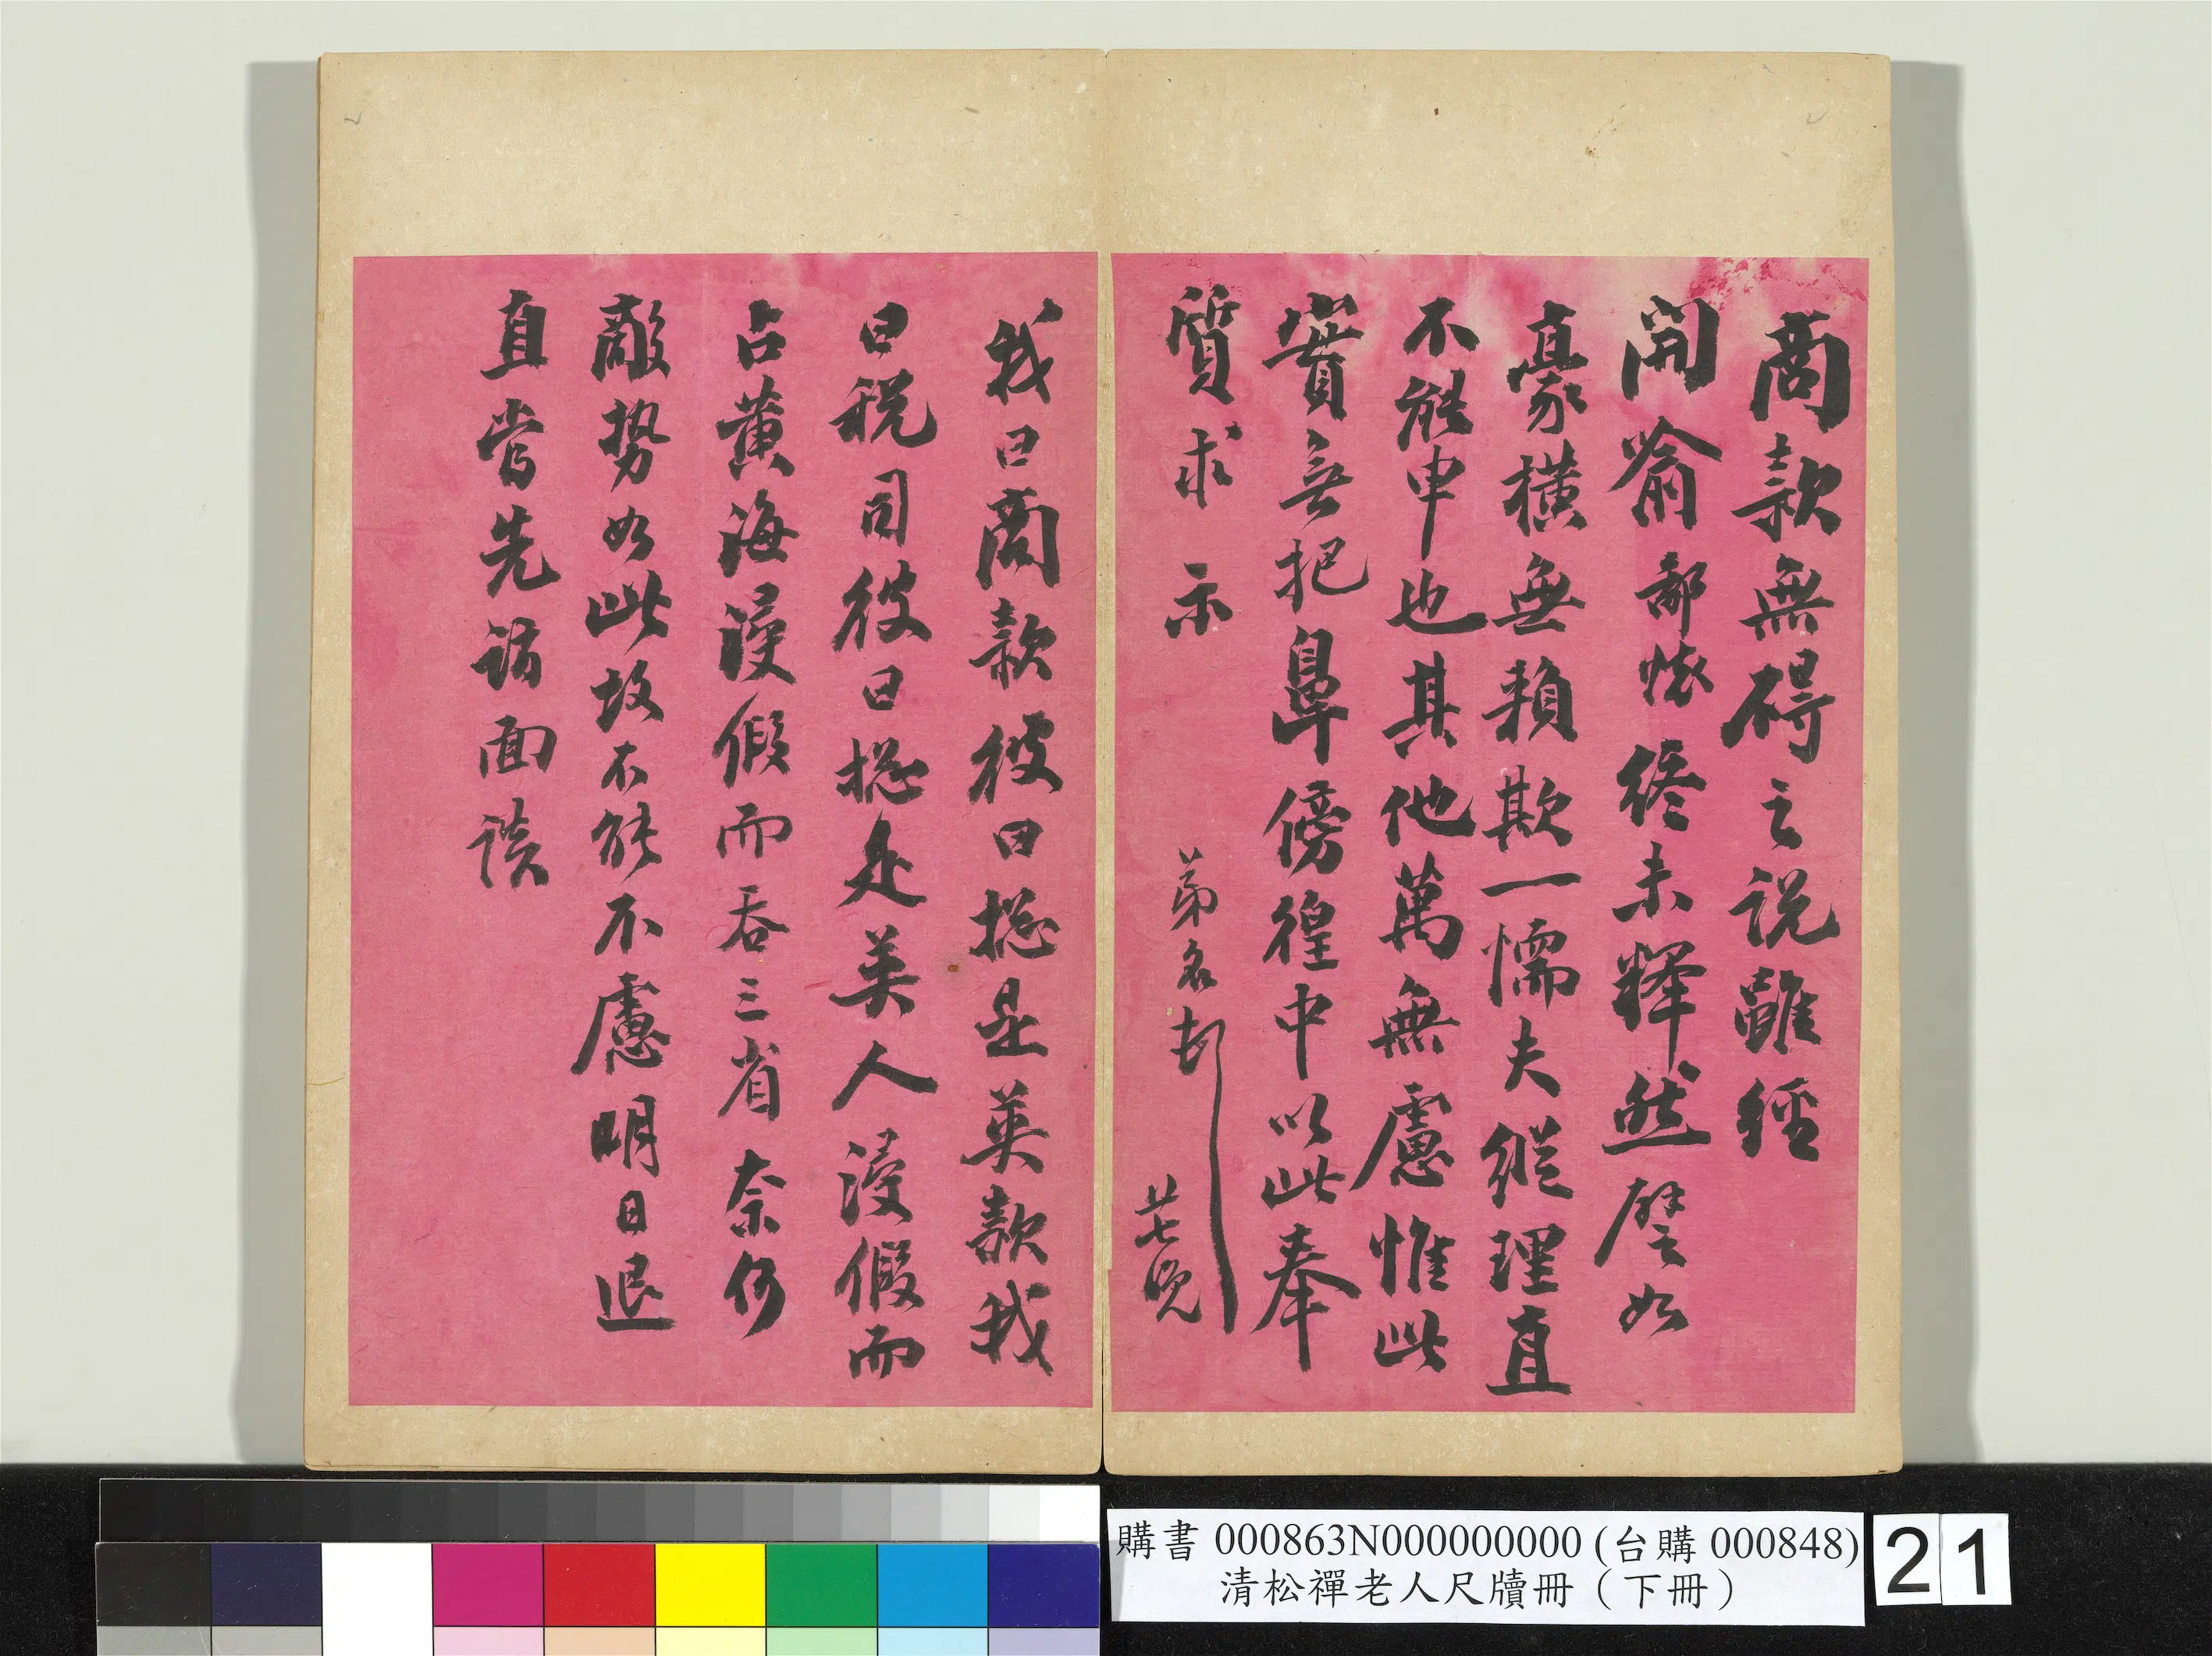 商款無碍之説雖經
開喻鄙懷終未釋然譬如
豪橫無賴欺一懦夫縱理直
不能申也其他萬無慮惟此
實無把鼻傍徨中以此奉
質求示
弟名頓
廿七晚
我曰商款彼曰揔是英款我
曰税司彼曰揔是英人浸假而
占黄海浸假而吞三省奈何
敵势如此故不能不慮明日退
直當先詣面談
購書 000863N000000000 (台購 000848)
清松禪老人尺牘冊（下冊）
21